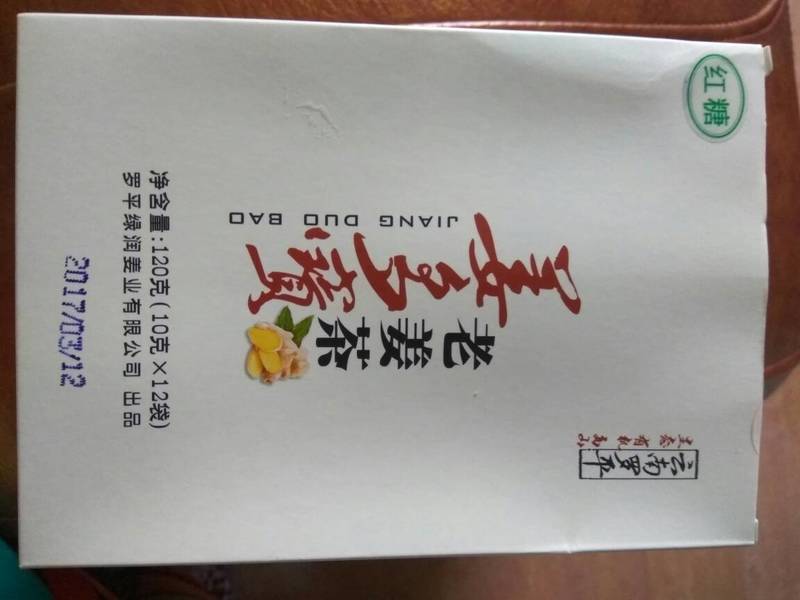 红糖
云南罗平
生态有机高山
姜多寶
JIANG DUO BAO
老姜茶
净含量:120克(10克×12袋)
罗平绿润姜业有限公司 出品
2017/03/12